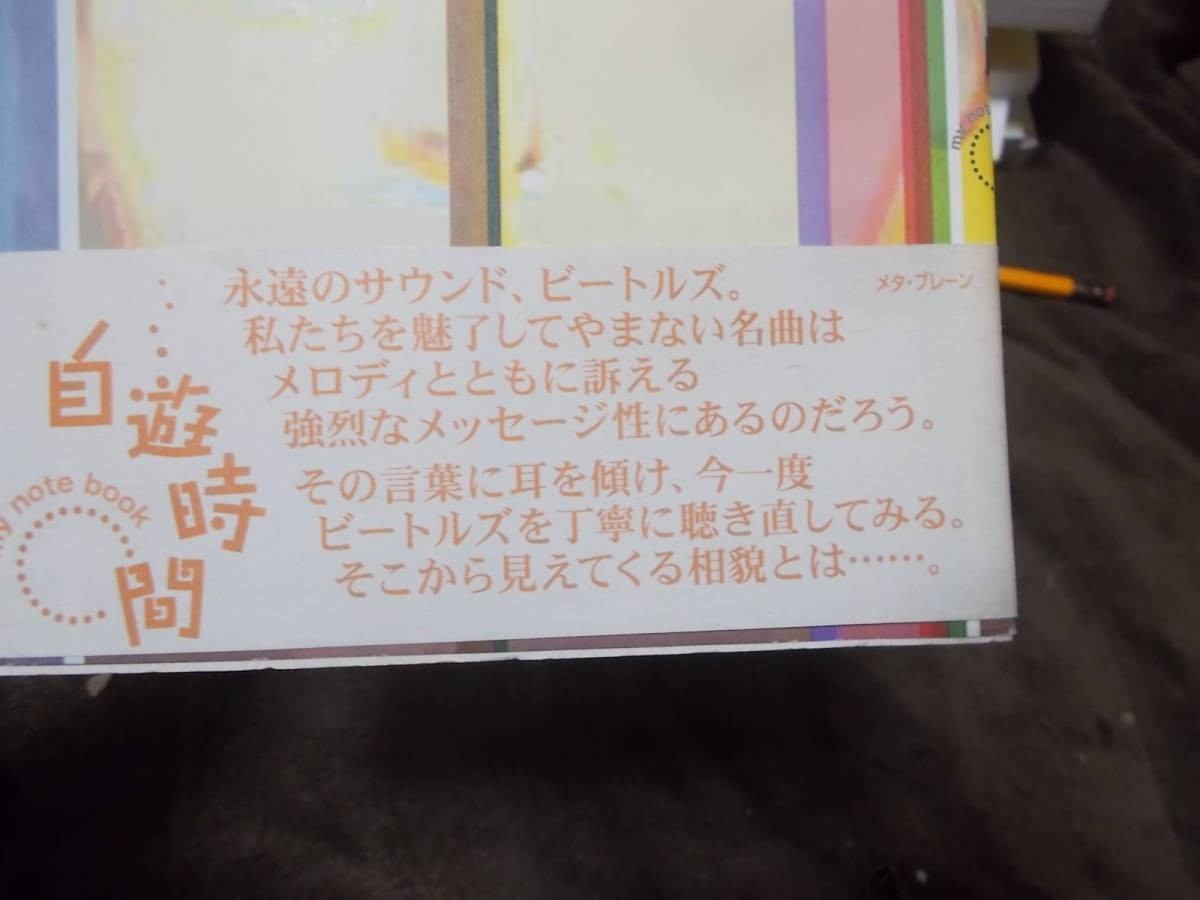 永遠のサウンド、ビートルズ。
私たちを魅了してやまない名曲は
メロディとともに訴える
強烈なメッセージ性にあるのだろう。
その言葉に耳を傾け、今一度
ビートルズを丁寧に聴き直してみる。
そこから見えてくる相貌とは……。
メタ・ブレーン
自遊時間
my note book
my no